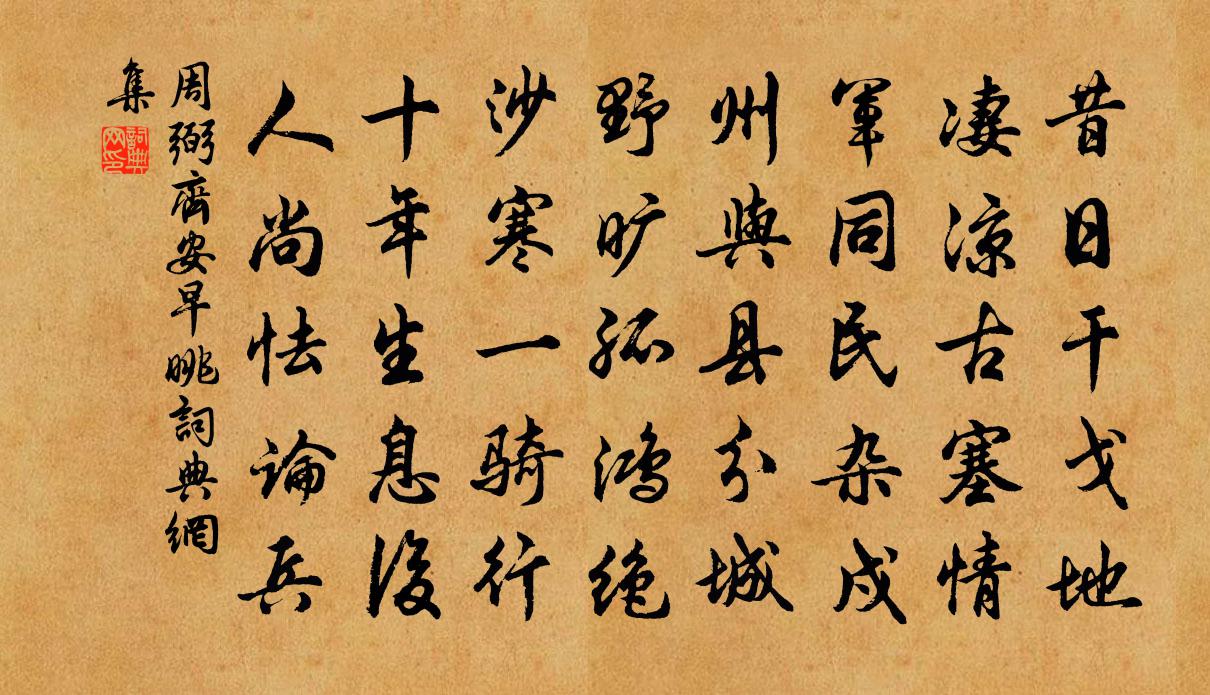 昔日干戈地
凄凉古塞情
军同民杂戍
州與县分城
野旷孤鸿绝
沙寒一骑行
十年生息後
人尚怯论兵
周弼齊安早眺詞典網
集
詞典网印